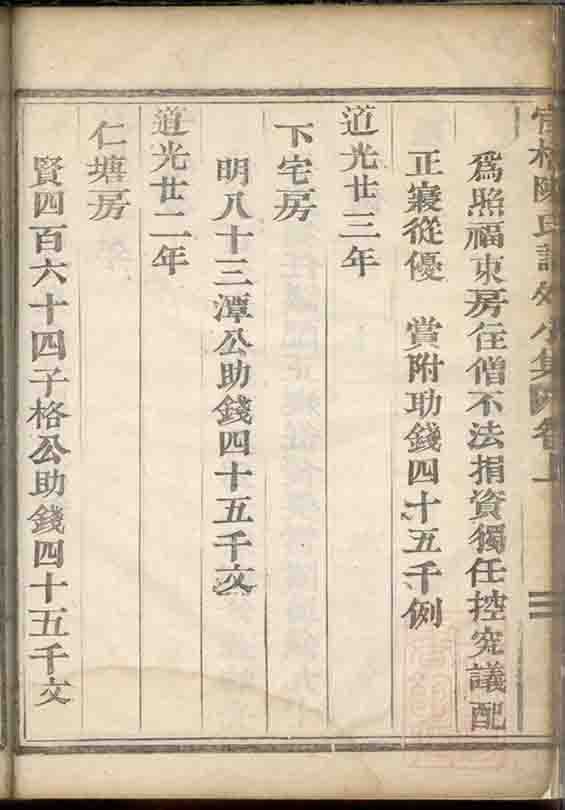 為照福東房住僧不法捐資獨任控究議配
正寢從優　賞附助錢四十五千例
道光廿三年
下宅房
明八十三潭公助錢四十五千文
道光廿二年
仁塘房
賢四百六十四子格公助錢四十五千文